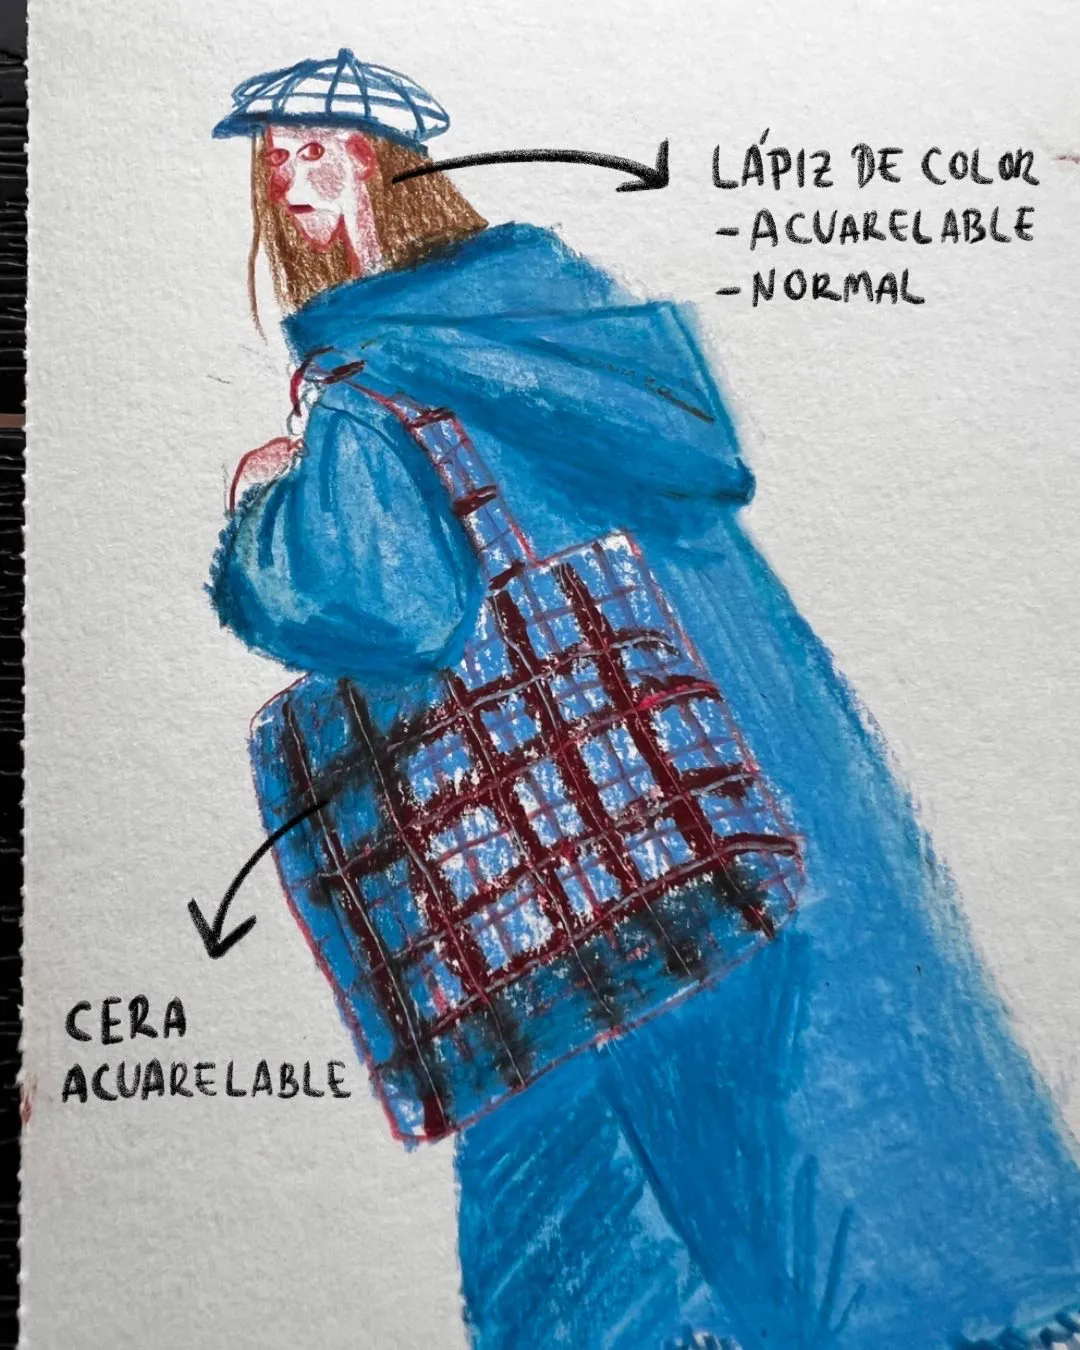 LÁPIZ DE COLOR
-ACUARELABLE
-NORMAL
CERA
ACUARELABLE